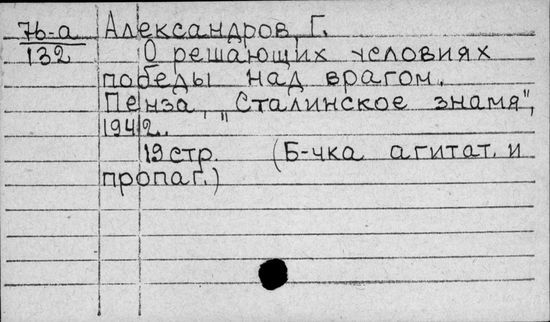 76-а Александров, Г.
132 О решающих условиях
победы над врагом.
Пенза, "Сталинское знамя",
1942.
19 стр. (Б-чка агитат. и
пропаг.)